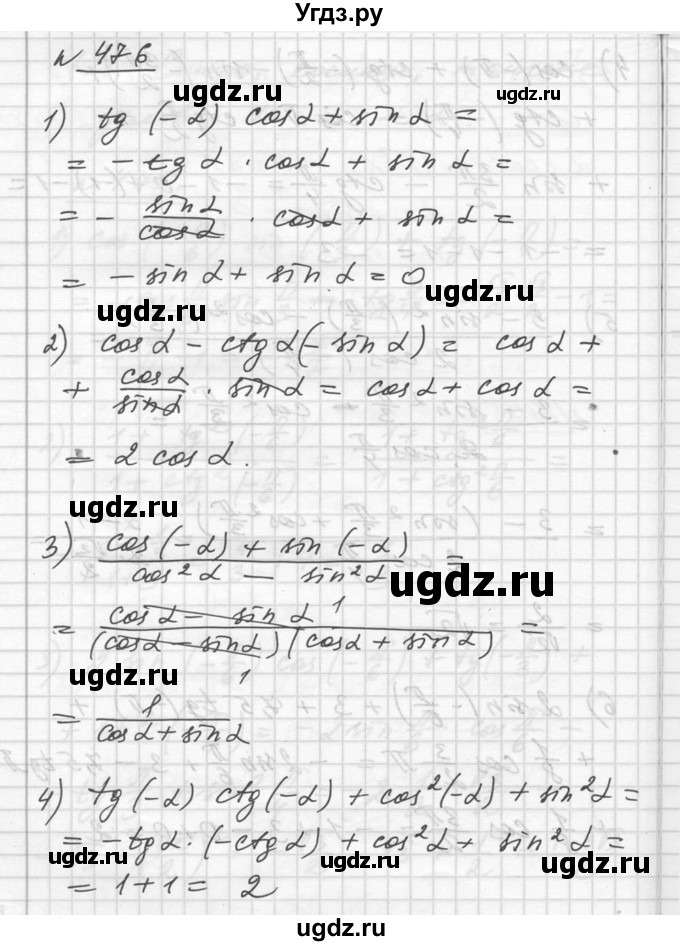 Угдз.ру
N 476
ugdz.ru ugdz.ru
1) tg (-α) cosα + sin α =
= - tg α · cosα + sin α =
= - sinα/cosα · cosα + sin α =
ugdz.ru
= - sin α + sin α = 0
ugdz.ru ugdz.ru
2) cosα - ctg α (- sin α) = cosα +
+ cosα/sinα · sin α = cosα + cosα =
ugdz.ru ugdz.ru
= 2 cosα.
ugdz.ru
3) cos(-α) + sin(-α)/cos²α - sin²α =
ugdz.ru
= cosα - sin α 1/(cosα - sinα)(cosα + sinα) =
ugdz.ru
1
= 1/cosα + sinα
ugdz.ru ugdz.ru
4) tg(-α) ctg(-α) + cos²(-α) + sin²α =
= - tgα · (-ctgα) + cos²α + sin²α =
ugdz.ru ugdz.ru
= 1 + 1 = 2
ugdz.ru